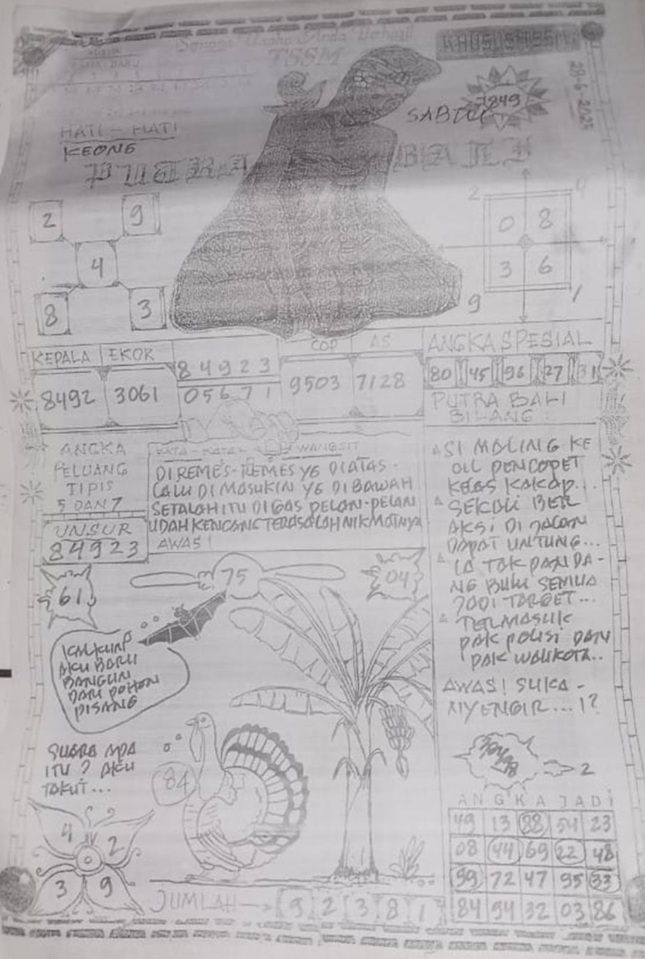 TSSM
KHUSUS TSSM
SABTU
7849
HATI-HATI
KEONG
PUTRA BALI
2 9
4
8 3
2 4
0 8
3 6
9 1
KEPALA EKOR
8492 3061
84923
05671
COP AS
9503 7128
ANGKA SPESIAL
80 45 96 27 31
PUTRA BALI
BILANG
ANGKA
PELUANG
TIPIS
5 DAN 7
UNSUR
84923
WANGSIT
DI REMES-REMES YG DIATAS-
LALU DI MASUKIN YG DIBAWAH
SETALAH ITU DI GAS PELAN-PELAN
UDAH KENCANG TERASALAH NIKMATNYA
AWAS!
SI MALING KE
CIL PENCOPET
KELAS KAKAP...
SEKALI BER
AKSI DI JALAN
DAPAT UNTUNG...
IA TAK PANDA-
NG BULU SEMUA
JADI TARGET...
TERMASUK
PAK POLISI DAN
PAK WALIKOTA..
AWAS! SUKA-
NYENGIR...!?
61
75
04
KALKUN?
AKU BARU
BANGUN
DARI POHON
PISANG
SUARA APA
ITU? AKU
TAKUT...
84
4 2
3 9
2
ANGKA JADI
49 13 88 54 23
08 44 69 22 48
99 72 47 95 33
84 94 32 03 86
JUMLAH → 9 2 3 8 1